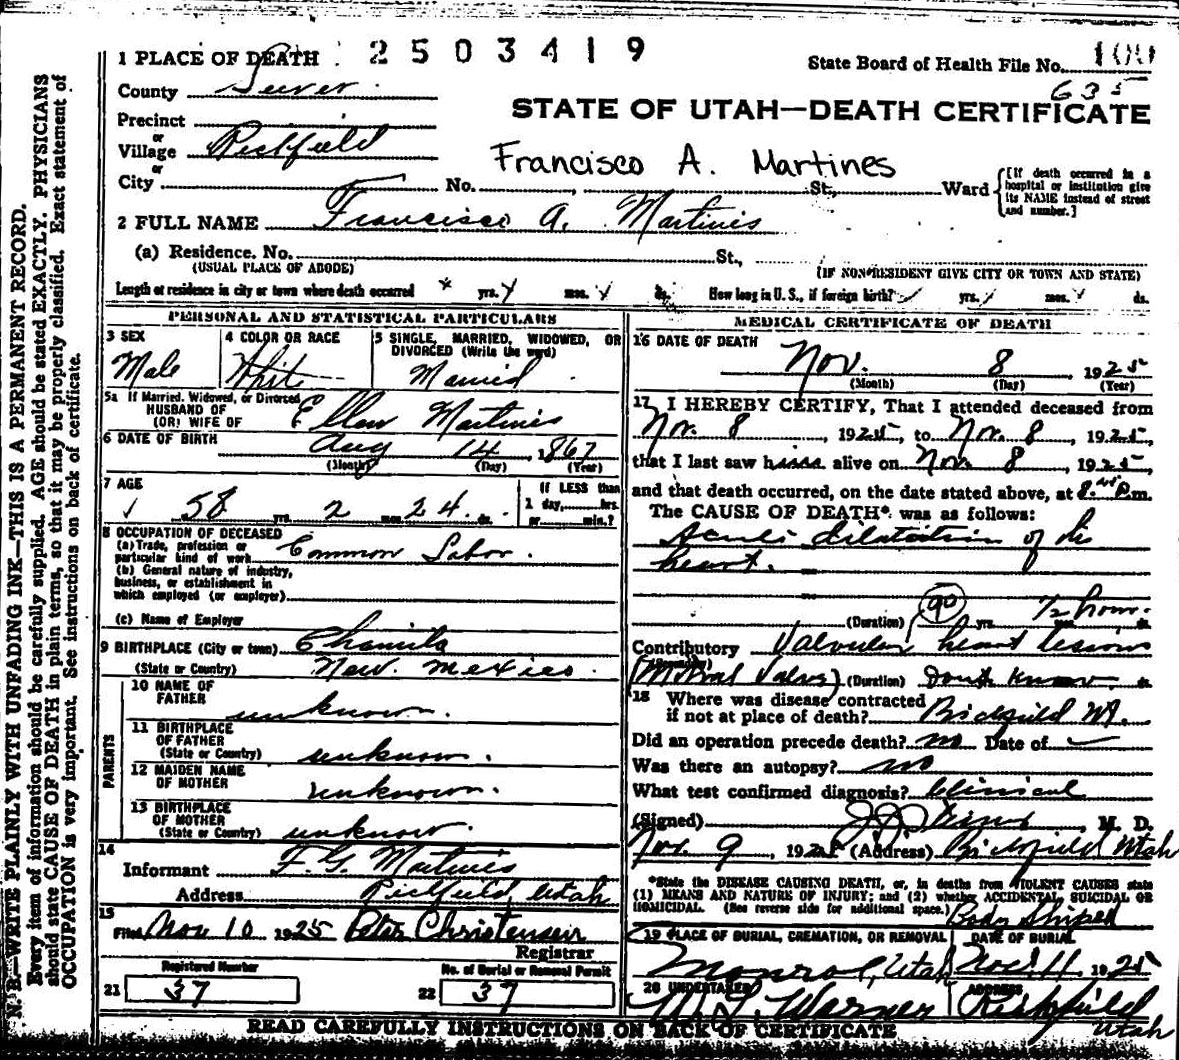 1 PLACE OF DEATH 2503419
State Board of Health File No. 100
635
County Sevier
STATE OF UTAH—DEATH CERTIFICATE
Precinct
or
Village Richfield
or
Francisco A. Martines
City No. St., Ward
[If death occurred in a hospital or institution give its NAME instead of street and number.]
2 FULL NAME Francisco A. Martinis
(a) Residence. No. St.,
(USUAL PLACE OF ABODE) (IF NON-RESIDENT GIVE CITY OR TOWN AND STATE)
Length of residence in city or town where death occurred yrs. mos. ds. How long in U.S., if foreign birth? yrs. mos. ds.
PERSONAL AND STATISTICAL PARTICULARS
3 SEX Male
4 COLOR OR RACE White
5 SINGLE, MARRIED, WIDOWED, OR DIVORCED (Write the word) Married
5a If Married, Widowed, or Divorced
HUSBAND OF
(OR) WIFE OF Ellen Martinis
6 DATE OF BIRTH Aug 14, 1867
(Month) (Day) (Year)
7 AGE 58 yrs. 2 mos. 24 ds.
If LESS than 1 day, hrs. or min.?
8 OCCUPATION OF DECEASED
(a) Trade, profession or particular kind of work Common Labor.
(b) General nature of industry, business, or establishment in which employed (or employer)
(c) Name of Employer
9 BIRTHPLACE (City or town) Chamita
(State or Country) New Mexico.
PARENTS
10 NAME OF FATHER unknown.
11 BIRTHPLACE OF FATHER (State or Country) unknown.
12 MAIDEN NAME OF MOTHER unknown.
13 BIRTHPLACE OF MOTHER (State or Country) unknown.
14
Informant F. G. Martinis
Address Richfield, Utah
15
Filed Nov 10 1925 Peter Christensen
Registrar
Registered Number
21 37
No. of Burial or Removal Permit
22 37
MEDICAL CERTIFICATE OF DEATH
16 DATE OF DEATH
Nov. 8 1925
(Month) (Day) (Year)
17 I HEREBY CERTIFY, That I attended deceased from
Nov. 8, 1925, to Nov. 8, 1925,
that I last saw him alive on Nov. 8, 1925,
and that death occurred, on the date stated above, at 8 P.m.
The CAUSE OF DEATH* was as follows:
Acute dilatation of the
heart.
90
(Duration) yrs. 1/2 hour. ds.
Contributory Valvular heart lesions
(Mitral Valve) (Duration) Dont know.
18 Where was disease contracted
if not at place of death? Richfield Ut.
Did an operation precede death? no Date of
Was there an autopsy? no
What test confirmed diagnosis? Clinical
(Signed) , M. D.
Nov. 9, 1925 (Address) Richfield Utah
*State the DISEASE CAUSING DEATH, or, in deaths from VIOLENT CAUSES state
(1) MEANS AND NATURE OF INJURY; and (2) whether ACCIDENTAL, SUICIDAL OR
HOMICIDAL. (See reverse side for additional space.) Body Shiped
19 PLACE OF BURIAL, CREMATION, OR REMOVAL DATE OF BURIAL
Monroe, Utah Nov. 11 1925
20 UNDERTAKER ADDRESS
Warner Richfield
Utah
READ CAREFULLY INSTRUCTIONS ON BACK OF CERTIFICATE
N. B.—WRITE PLAINLY WITH UNFADING INK—THIS IS A PERMANENT RECORD.
Every item of information should be carefully supplied. AGE should be stated EXACTLY. PHYSICIANS
should state CAUSE OF DEATH in plain terms, so that it may be properly classified. Exact statement of
OCCUPATION is very important. See instructions on back of certificate.